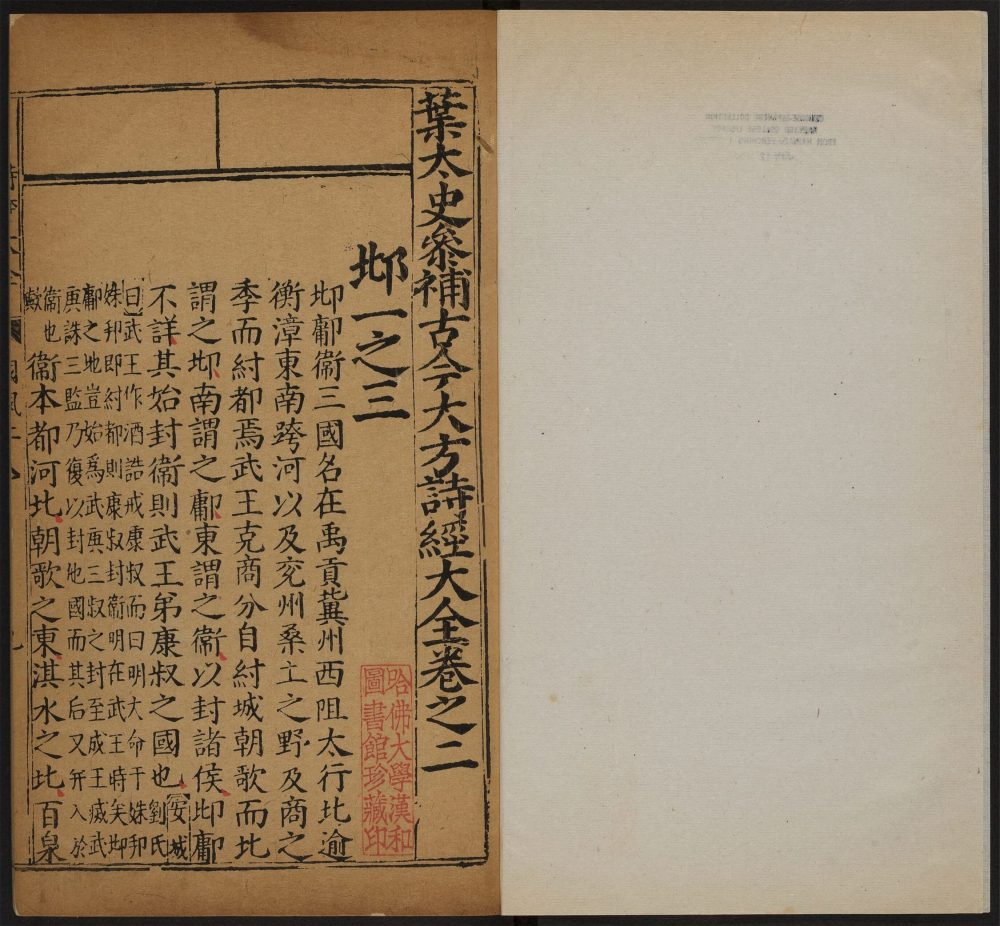 葉太史叅補古今大方詩經大全卷之二
邶一之三
邶鄘衛三國名在禹貢冀州西阻太行北逾
衡漳東南跨河以及兖州桑土之野及商之
季而紂都焉武王克商分自紂城朝歌而北
謂之邶南謂之鄘東謂之衛以封諸侯邶鄘
不詳其始封衛則武王弟康叔之國也安城
劉氏
曰武王作酒誥戒康叔而曰明大命于妹邦
妹邦即紂都則康叔封衛明在武王時矣邶
鄘之地豈始爲武庚三叔之封至成王滅武
庚誅三監乃復以封他國而其后又并入於
衛也
歟
衛本都河北朝歌之東淇水之北百泉
哈佛大學漢和
圖書館珍藏印